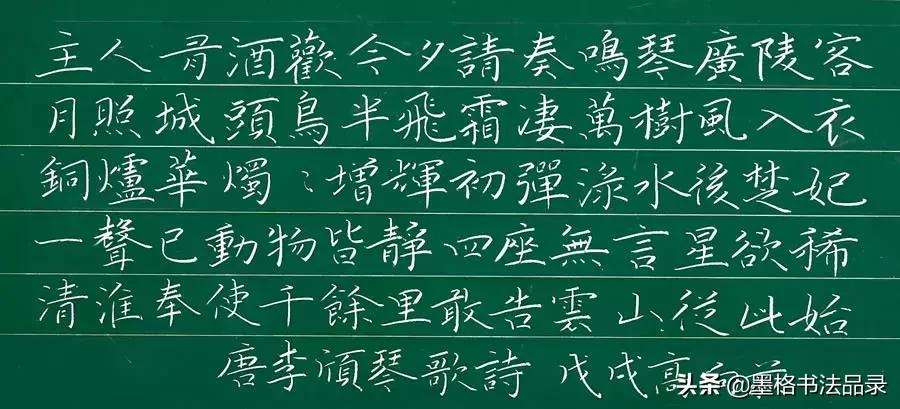 主人有酒歡今夕請奏鳴琴廣陵客
月照城頭鳥半飛霜凄萬樹風入衣
銅爐華燭〻增輝初彈淥水後楚妃
一聲已動物皆靜四座無言星欲稀
清淮奉使千餘里敢告雲山從此始
唐李頎琴歌詩 戊戌高
头条@墨格书法品录